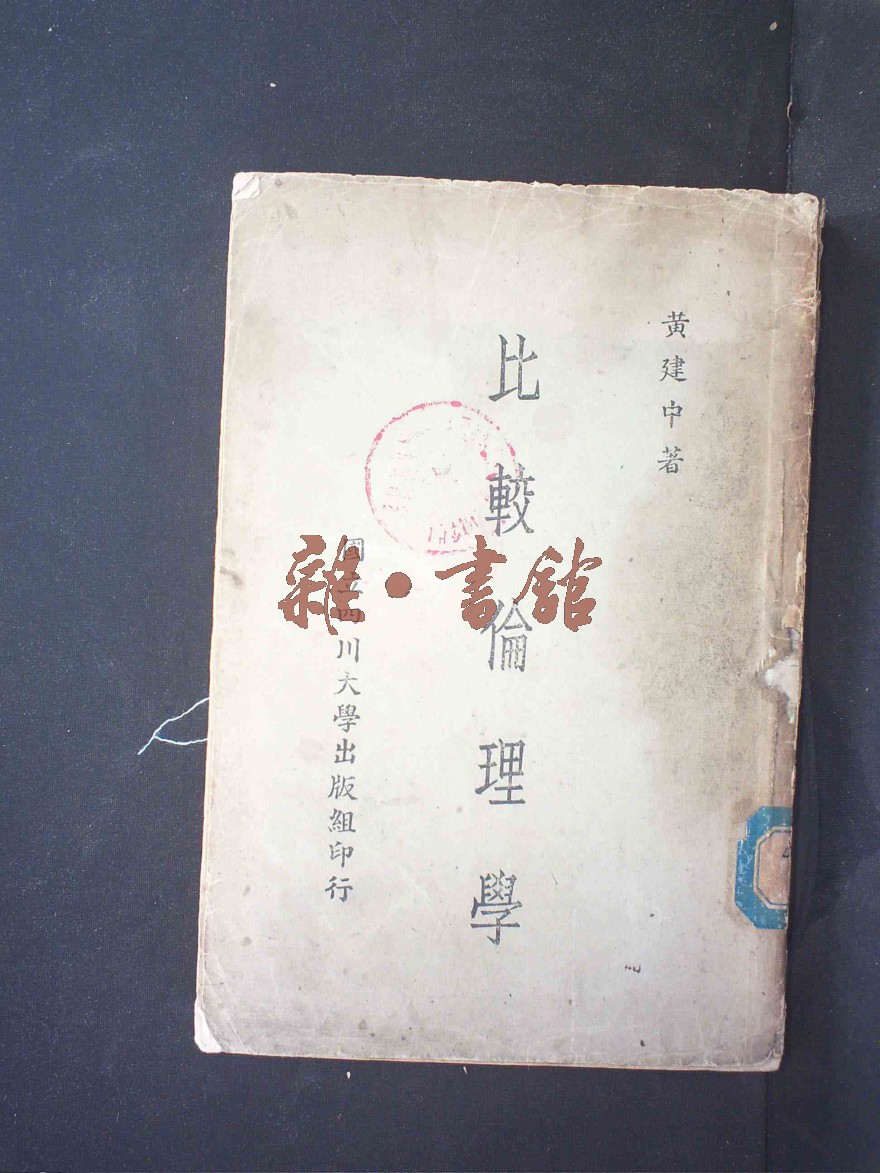 黃建中著
比較倫理學
國立四川大學出版組印行
雜·書館